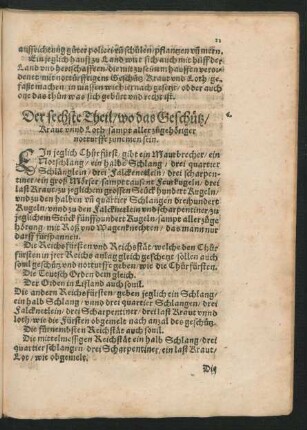 21
auffrichtung güter pollicei zu schülen, pflantzen vñ mern.
Ein jeglich hauß zu Land wie sich auch mit hülff der
Land vnd herrschafften, die mit zu stüm̃ hauffen verordenet
mit notturfftigem Geschütz Kraut vnd Loth gefaßt
machen, in massen wie hernach
das thun was sich gebürt vnd recht ist.
Der sechste Theil, wo das Geschütz,
Kraut vnnd Loth sampt aller zugehöriger
notturfft zunemen sein.
EIn jeglich Chürfürst, gibt ein Maurbrecher, ein
Notschlang, ein halb Schlang, drei quartier
Schlänglein, drei Falckenetlein, drei scharpentiner,
ein groß Möser, sampt Feurkugeln, drei
last Kraut, zu jeglichem grossen Stück hundert Kugeln,
vnnd zu den halben vñ quartier Schlangen dreihundert
Kugeln, vnnd zu den Falckenetlein vnd scharpentiner zu
jeglichem Stück fünffhundert Kugeln, sampt aller zugehörung,
mit Roß vnd Wagenknechten, das mann nur
darff fürspannen.
Die Reichsfürsten vnd Reichsstät, welche den Chürfürsten
in jrer Reichs anlag gleich gescheßt sollen auch
souil geschütz vnd notturfft geben, wie die Chürfürsten.
Die Teutsch Orden dem gleich.
Der Orden in Lifland auch souil.
Die andern Reichsfürsten, geben jeglich ein Schlang,
ein halb Schlang, vnnd drei quartier Schlangen, drei
Falcknetlein, drei Scharpentiner, drei last Kraut vnnd
loth, wie die Fürsten obgemelt nach anzal des geschütz.
Die fürnemsten Reichstät auch souil.
Die mittelmessigen Reichstät ein halb Schlang, drei
quartier schlangen, drei Scharpentiner, ein last Kraut,
Lot, wie obgemelt.
Die